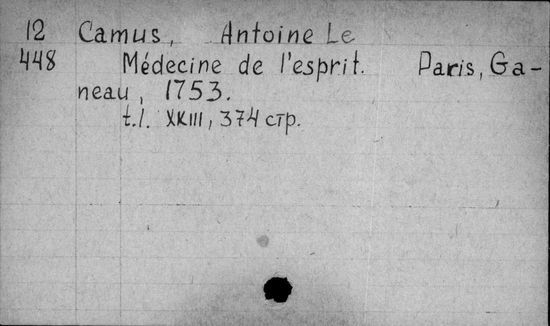 12 Camus, Antoine Le
448 Médecine de l'esprit. Paris, Ga-
neau, 1753.
t.1. XXIII, 374 стр.